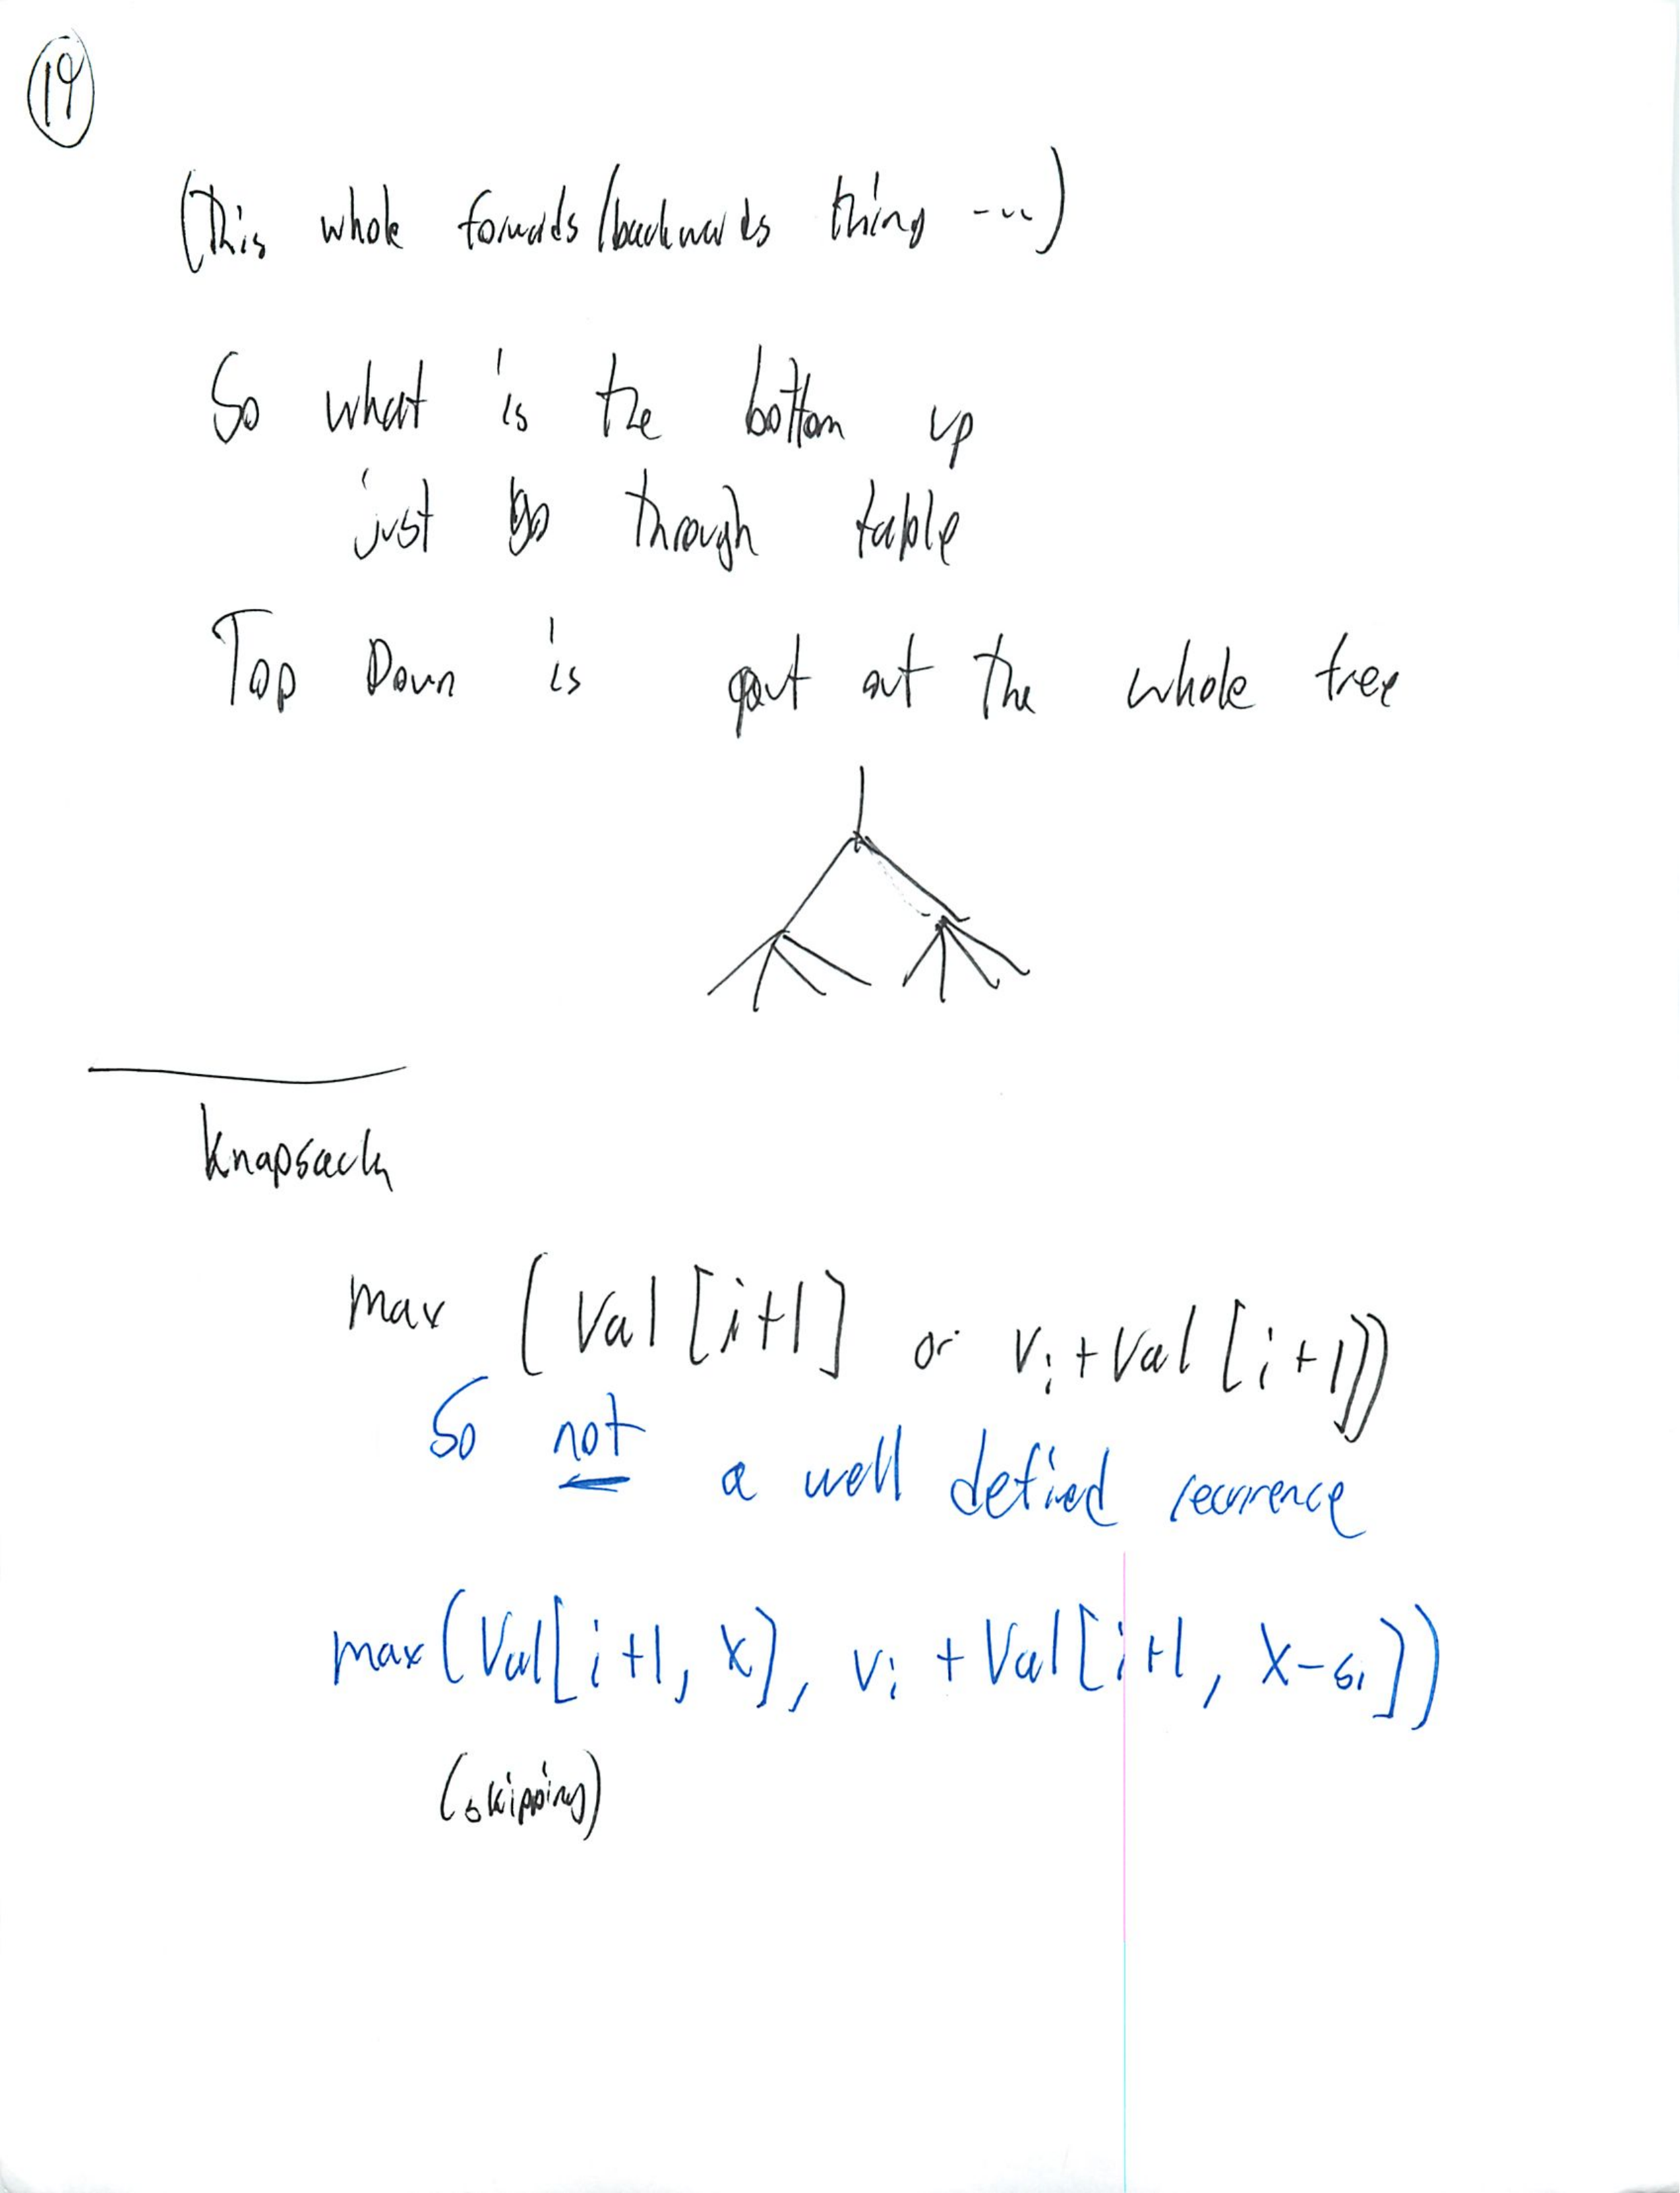 19
(This whole forwards/backwards thing ---)
So what is the bottom up
just go through table
Top Down is at the whole tree
Knapsack
max (Val[i+1] or vi+Val[i+1])
So not a well defined recurrence
max(Val[i+1, X], vi + Val[i+1, X-si])
(skipping)